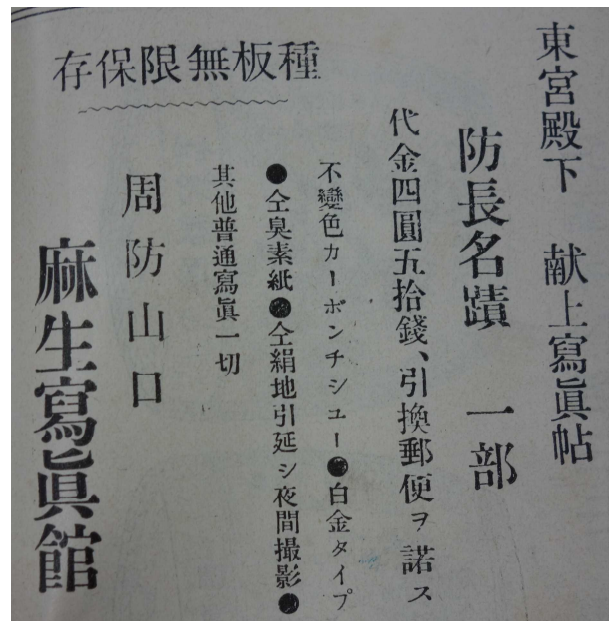 東宮殿下　献上寫眞帖
防長名蹟　一部
代金四圓五拾錢、引換郵便ヲ諾ス
不變色カーボンチシユー●白金タイプ
●仝臭素紙●仝絹地引延シ夜間撮影●
其他普通寫眞一切
種板無限保存
周防山口
麻生寫眞館